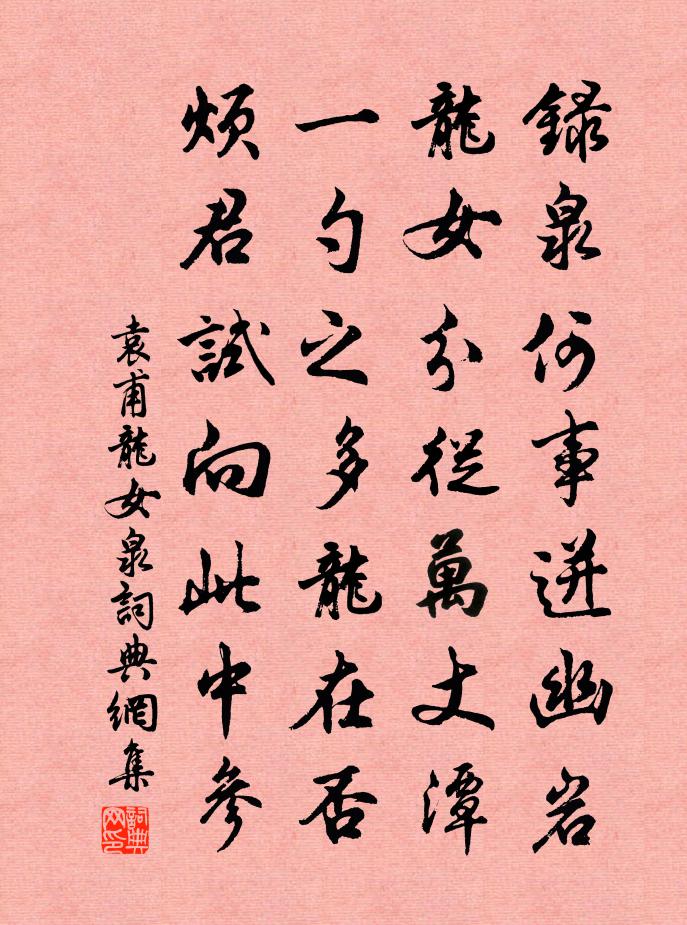 録泉何事迸幽岩
龍女分從萬丈潭
一勺之多龍在否
煩君試向此中參
袁甫龍女泉詞典網集
詞典网印